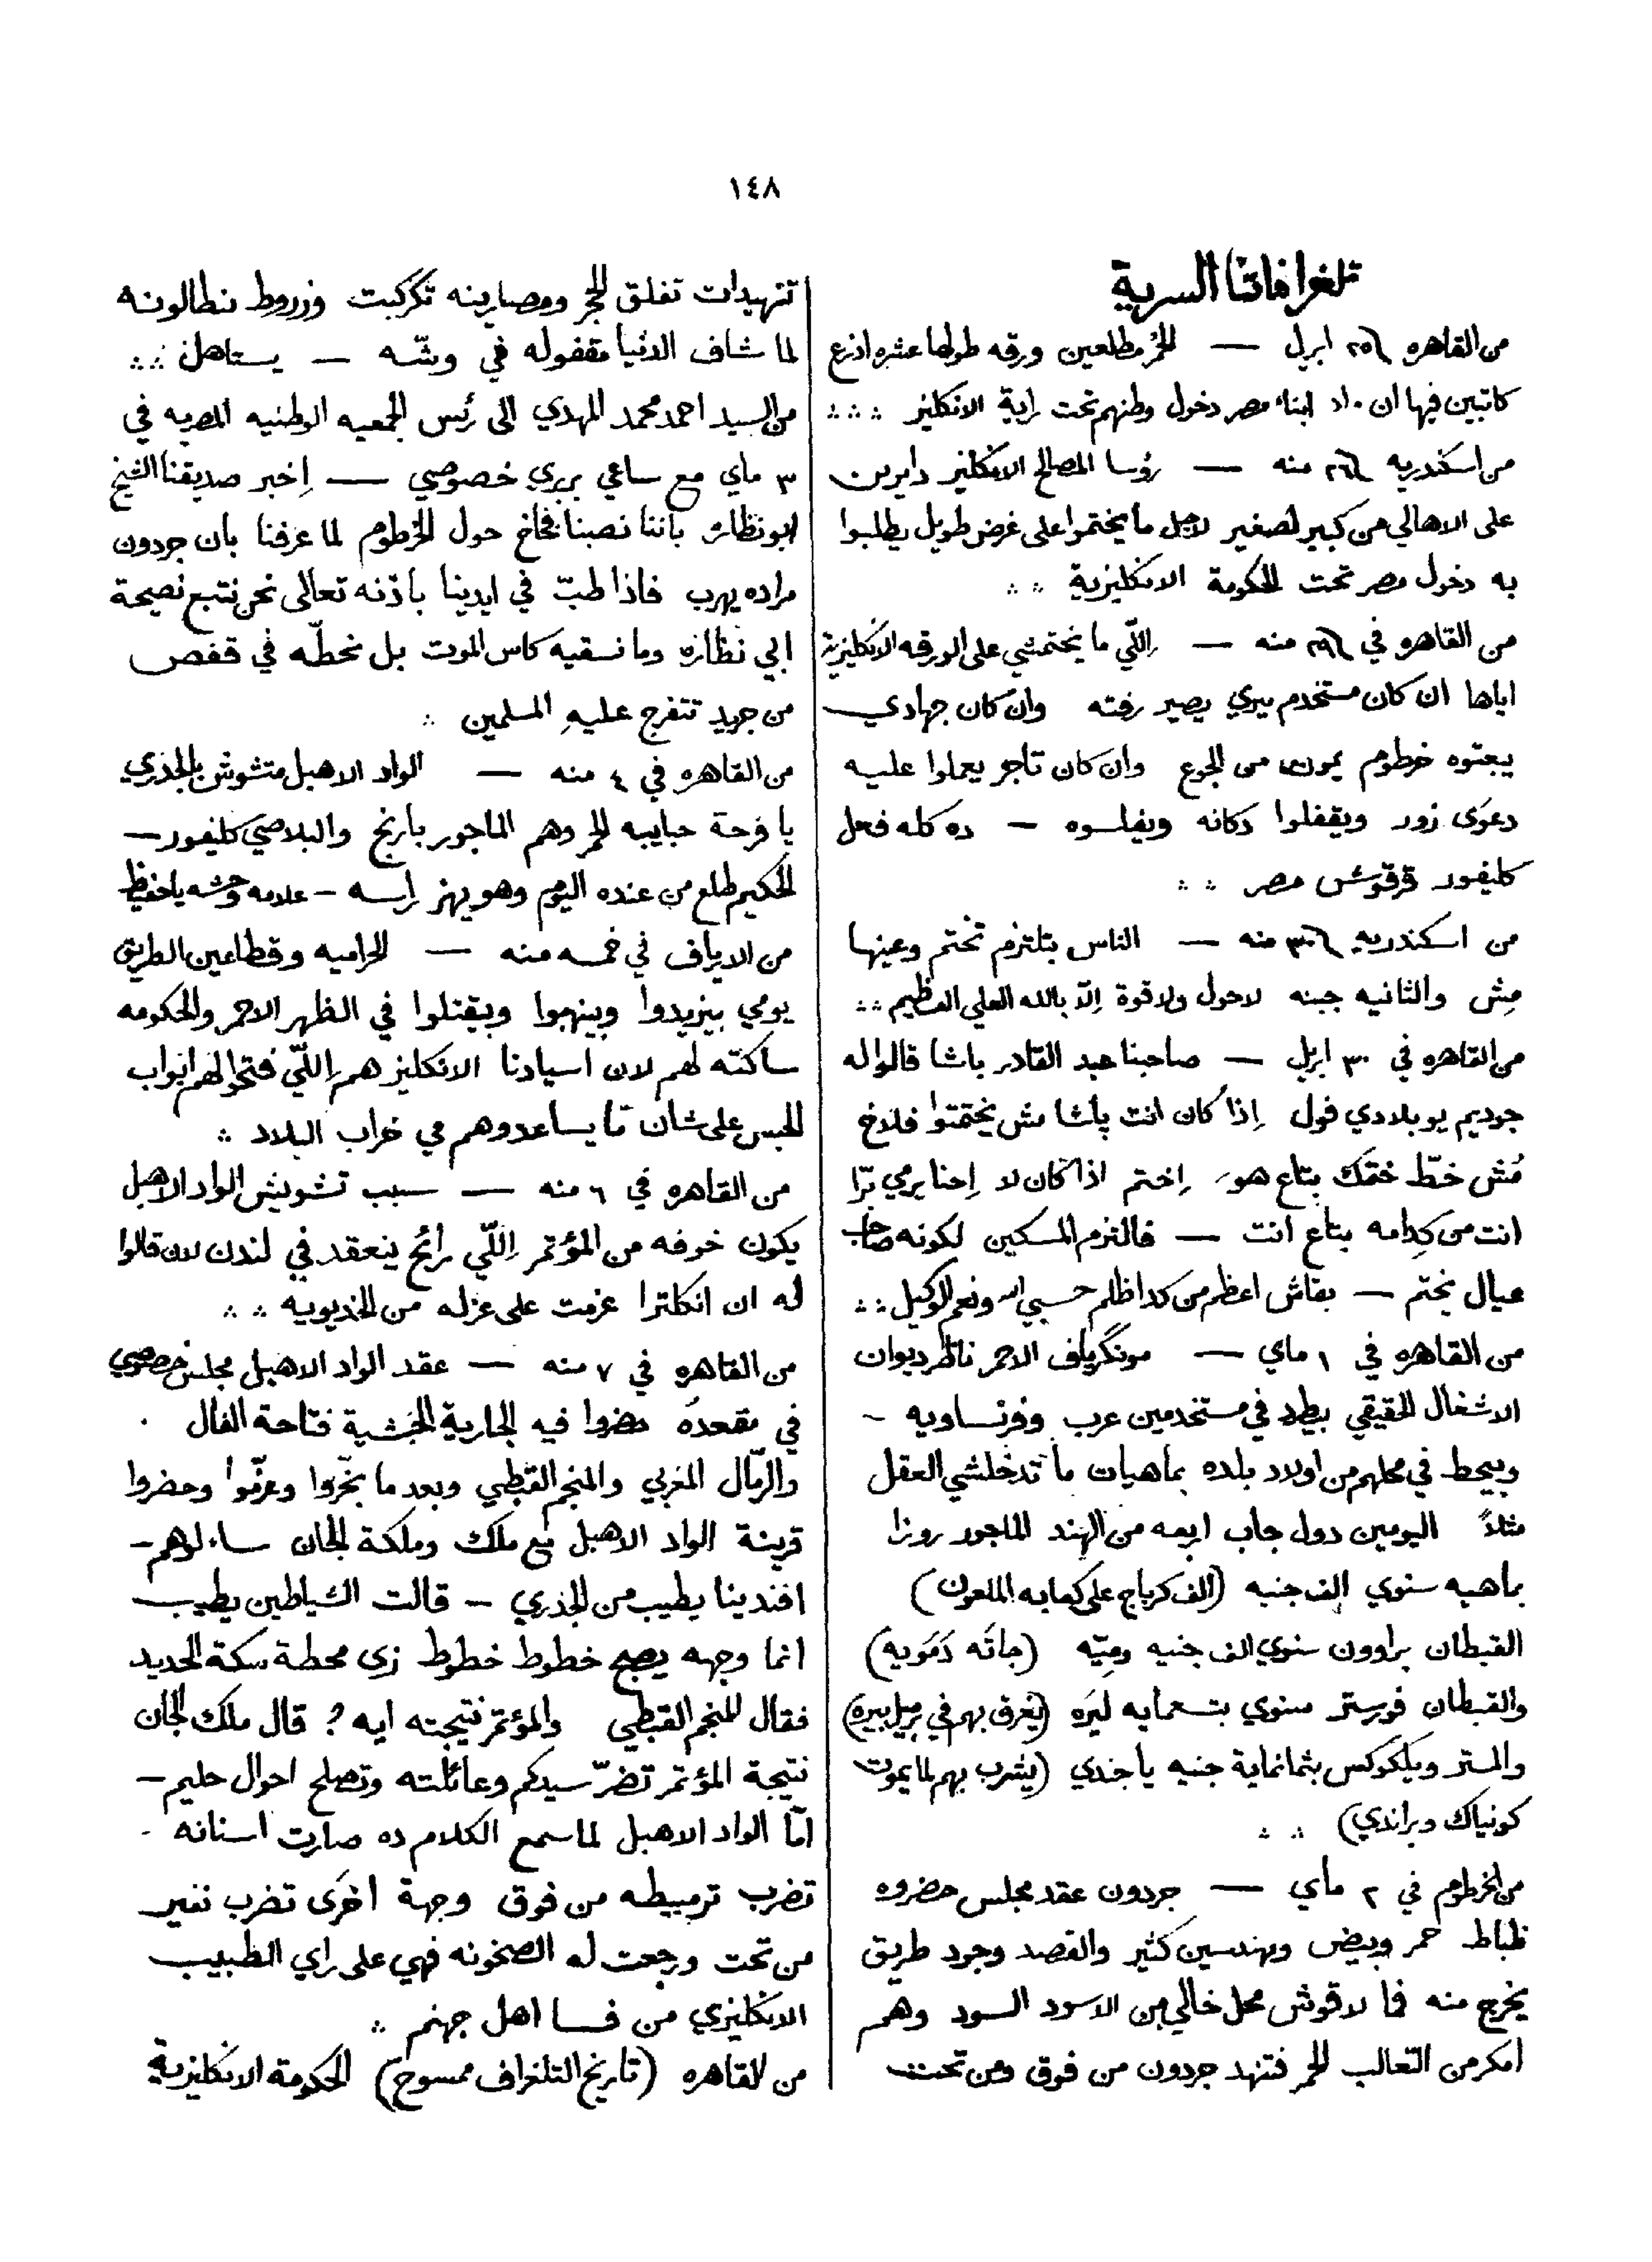 ١٤٨
تلغرافاتنا السرية
من القاهره ٢٥ ابريل — الحمر مطلعين ورقه طولها عشره اذرع
كاتبين فيها ان مراد ابناء مصر دخول وطنهم تحت راية الانكليز ∴ ∴
من اسكندريه ٢٦ منه — رؤسا المصالح الانكليز دايرين
على الاهالي من كبير لصغير لاجل ما يختموا على غرض طويل يطلبوا
به دخول مصر تحت الحكومة الانكليزية ∴
من القاهره في ٢٩ منه — اِللّي ما يختمشي على الورقه الانكليزية
اياها ان كان مستخدم ميري يصير رفته وان كان جهادي
يبعتوه خرطوم يموت من الجوع وان كان تاجر يعملوا عليه
دعوى زور ويقفلوا دكانه ويفلسوه — ده كله فعل
كليفور قرقوش مصر ∴
من اسكندريه ٣٠ منه — الناس بتلتزم تختم وعينها
مِش والثانيه جبنه لاحول ولا قوة اِلّا بالله العلي العظيم ∴
من القاهره في ٣٠ ابريل — صاحبنا عبد القادر باشا قالوا له
جوديم يو بلادي فول اِذا كان انت باشا مش يختمتوا فلاح
مُش خطّ ختمك بتاع هو اِختم اذا كان لا اِحنا يرمي برّا
انت من كِدامه بتاع انت — فالتزم المسكين لكونه صاحب
عيال يختم — بقاش اعظم من كدا ظلم حسبي الله ونعم الوكيل ∴
من القاهره في ١ ماي — مونكريف الاحمر ناظر ديوان
الاشغال الحقيقي بيطرد في مستخدمين عرب وفرنساويه —
وبيحط في محلهم من اولاد بلده بماهيات ما تدخلشي العقل
مثلاً اليومين دول جاب اربعه من الهند الماجور روزا
بماهيه سنوي الف جنيه (الف كرباج على كعابه الملعون)
القبطان براوون سنوي الف جنيه وميّه (جاتَه دَمَويه)
والقبطان فورستر سنوي بتسعمايه ليَره (يَغرق بهم في برميل بيره)
والمستر ويلكوكس بثمانماية جنيه يا جندي (يِشرب بهم لما يموت
كونياك وبراندي) ∴
من الخرطوم في ٢ ماي — جردون عقد مجلس حضروه
ظباط حمر وبيض ومهندسين كثير والقصد وجود طريق
يخرج منه فما لاقوش محل خالي من الاسود السود وهم
امكر من التّعالب الحمر فتنهد جردون من فوق ومن تحت
تنهيدات تفلق الحجر ومصارينه تكركبت وزروط بنطالونه
لما شاف الدنيا مقفوله في وشّه — يستاهل ∴
من السيد احمد محمد المهدي الى رئس الجمعيه الوطنيه المصريه في
٣ ماي مع ساعي بربري خصوصي — اِخبر صديقنا الشيخ
ابو نظاره باننا نصبنا فخاخ حول الخرطوم لما عرفنا بان جردون
مراده يهرب فاذا طبّ في ايدينا باذنه تعالى نحن نتبع نصيحة
ابي نظاره وما نسقيه كاس الموت بل نحطّه في قفص
من جريد تتفرج عليهِ المسلمين ∴
من القاهره في ٤ منه — الواد الاهبل متشوش بالجذري
يا فرحة حبايبه الحمر وهم الماجور بارنج والبلاصي كليفور —
الحكيم طلع من عنده اليوم وهو يهز راسه — علامه وحشه يا حفيظ
من الارياف في خمسه منه — الحراميه وقطاعين الطريق
يومي بيزيدوا وينهبوا ويقتلوا في الظهر الاحمر والحكومه
ساكته لهم لان اسيادنا الانكليز هم اِللّي فتحوا لهم ابواب
الحبس على شان ما يساعدوهم في خراب البلاد ∴
من القاهره في ٦ منه — سبب تشويش الواد الاهبل
يكون خوفه من المؤتمر اِللّي رايح ينعقد في لندن لان قالوا
له ان انكلترا عزمت على عزله من الخديويه ∴
من القاهره في ٧ منه — عقد الواد الاهبل مجلس خصوصي
في مقعده حضروا فيه الجارية الحبشية فتاحة الفال .
والرمّال المغربي والمنجم القبطي وبعد ما بخّروا وعزّموا وحضروا
قرينة الواد الاهبل مع ملك وملكة الجان ساءلوهم —
افندينا يطيب من الجذري — قالت الشياطين يطيب
انما وجهه يصبح خطوط خطوط زي محطة سكة الحديد
فقال المنجم القبطي والمؤتمر نتيجته ايه ? قال ملك الجان
نتيجة المؤتمر تضرّ سيدكم وعائلته وتصلح احوال حليم —
امّا الواد الاهبل لما سمع الكلام ده صارت اسنانه .
تضرب ترمبيطه من فوق وجهة اخرى تضرب نفير
من تحت ورجعت له الصخونه فهي على راي الطبيب
الانكليزي من فسا اهل جهنم ∴
من القاهره (تاريخ التلغراف ممسوح) الحكومة الانكليزية